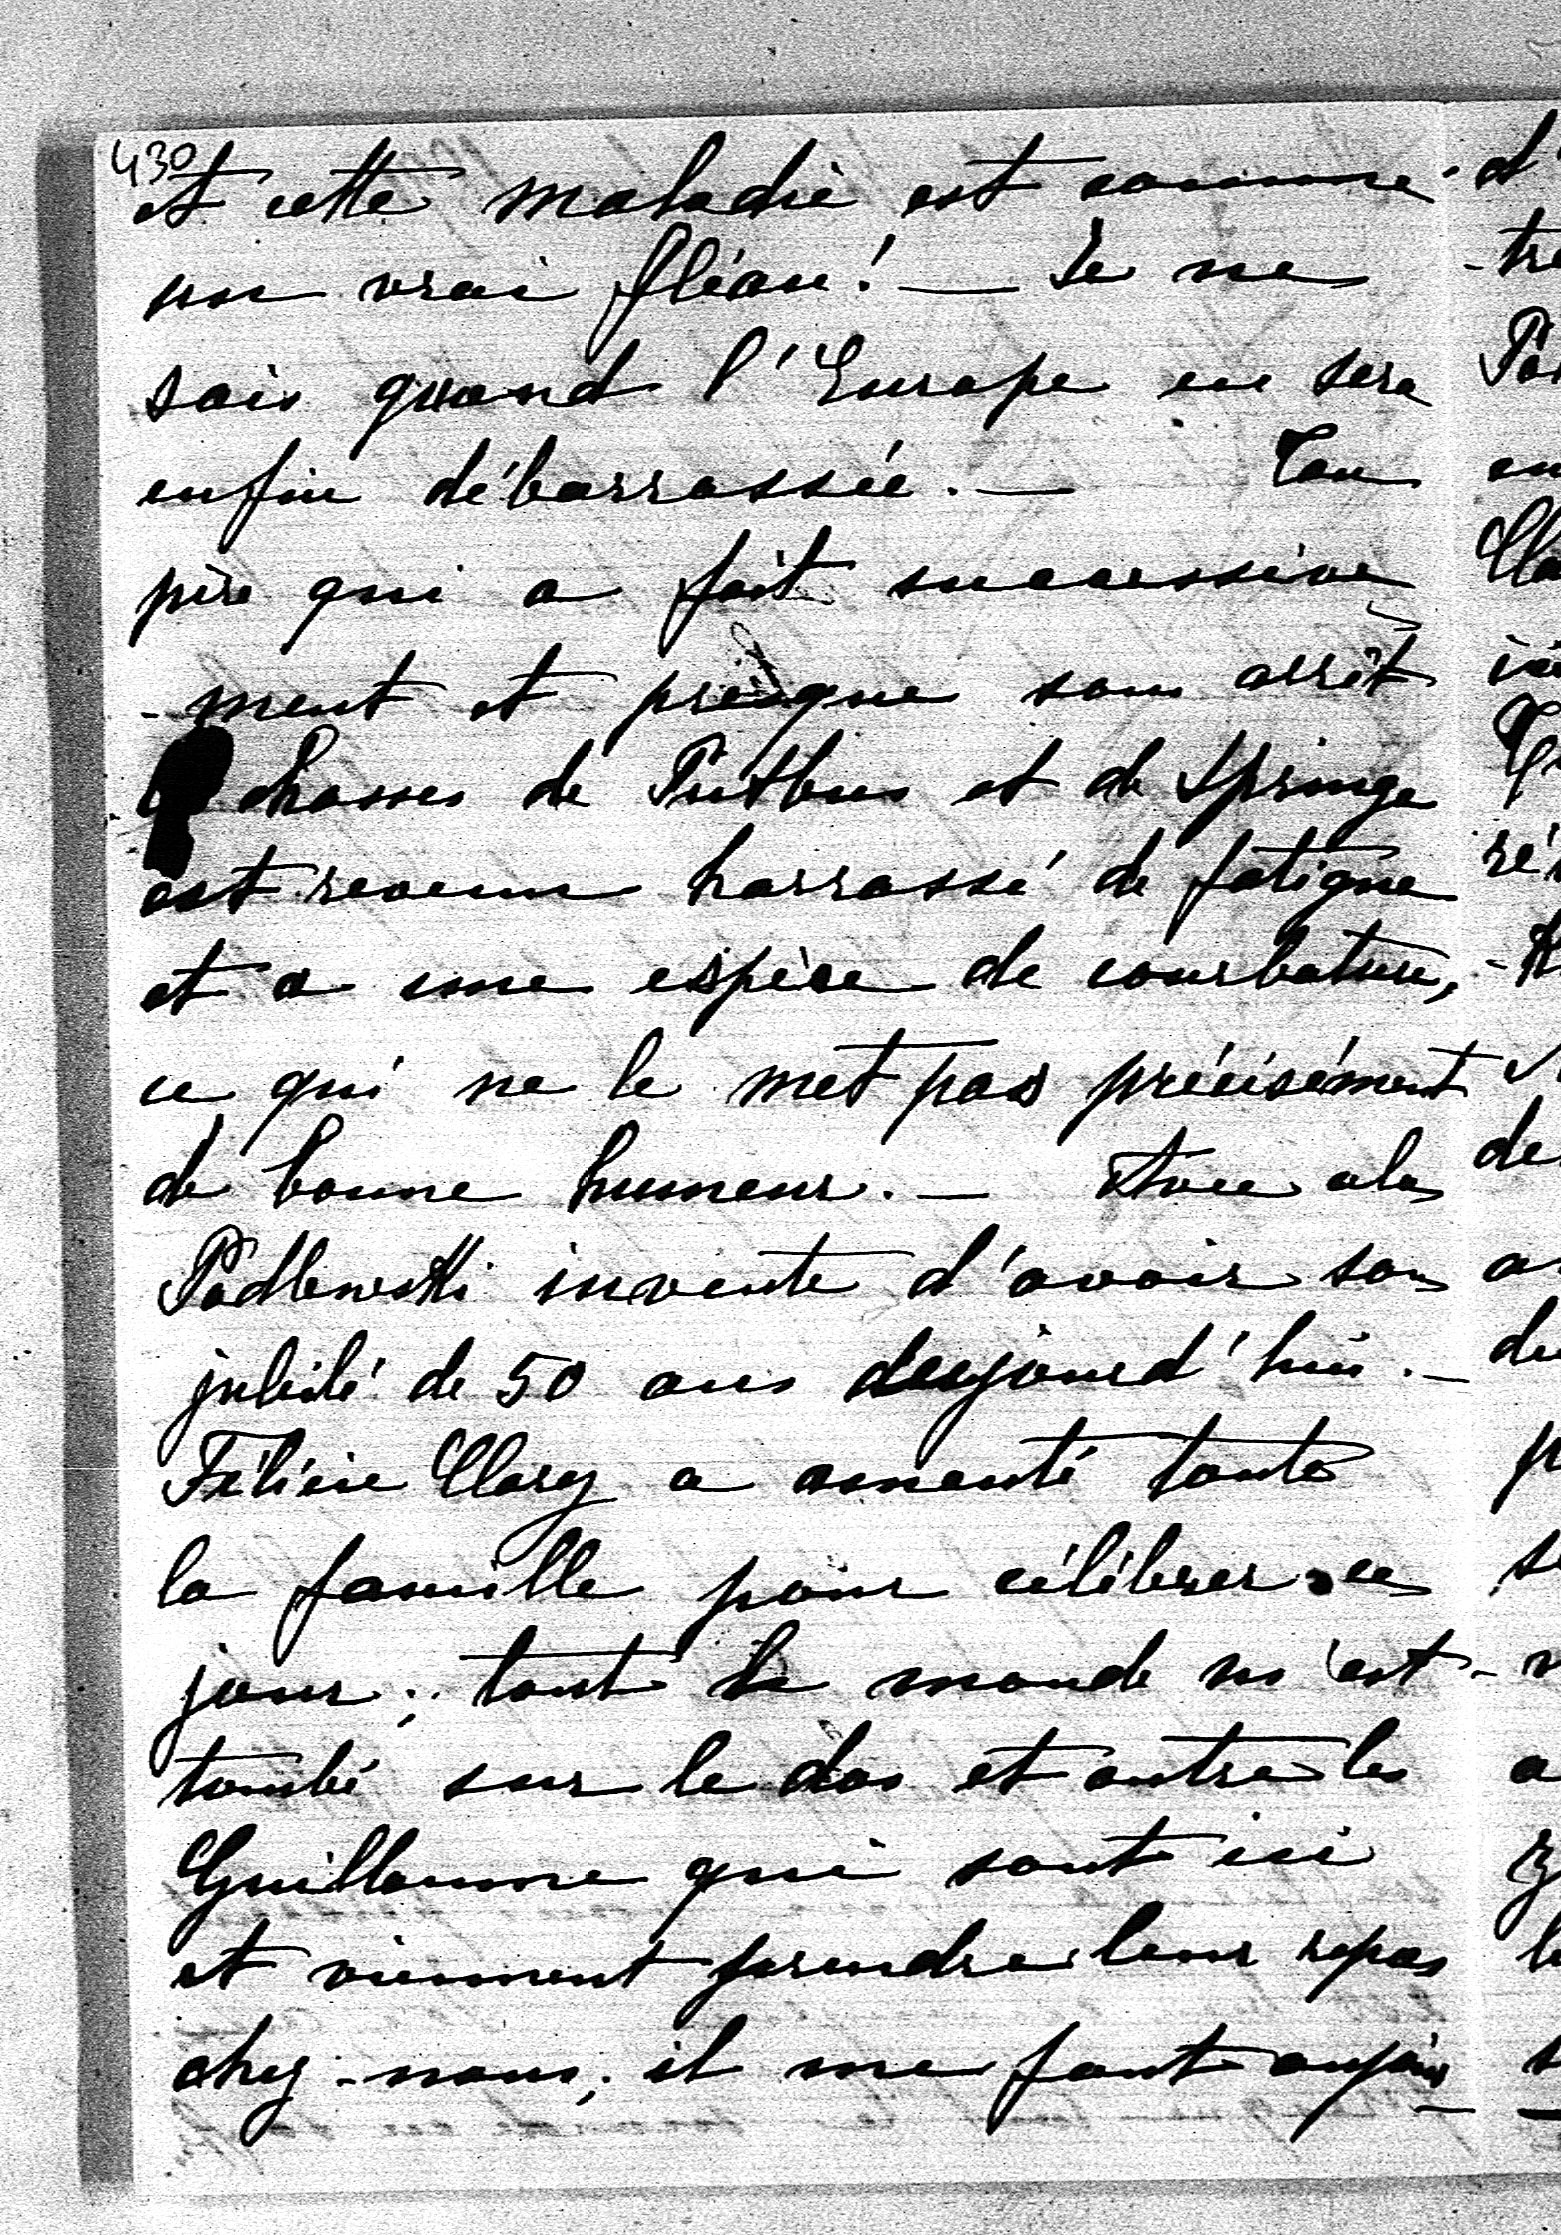 430
et cette maladie est comme
un vrai fléau! — Je ne
sais quand l'Europe en sera
enfin débarrassée. — Ton
père qui a fait successive
-ment et presque sans arrêt
chasses de Putbus et de Springe
est revenu harrassé de fatigue
et a une espèce de courbature,
ce qui ne le met pas précisément
de bonne humeur. — Avec cela
Podbewski invente d'avoir son
jubilé de 50 ans aujourd'hui. —
Félicie Clary a ameuté toute
la famille pour célébrer ce
jour; tout le monde m'est
tombé sur le dos et outre les
Guillaume qui sont ici
et viennent prendre leur repas
chez-nous; il me faut aujour